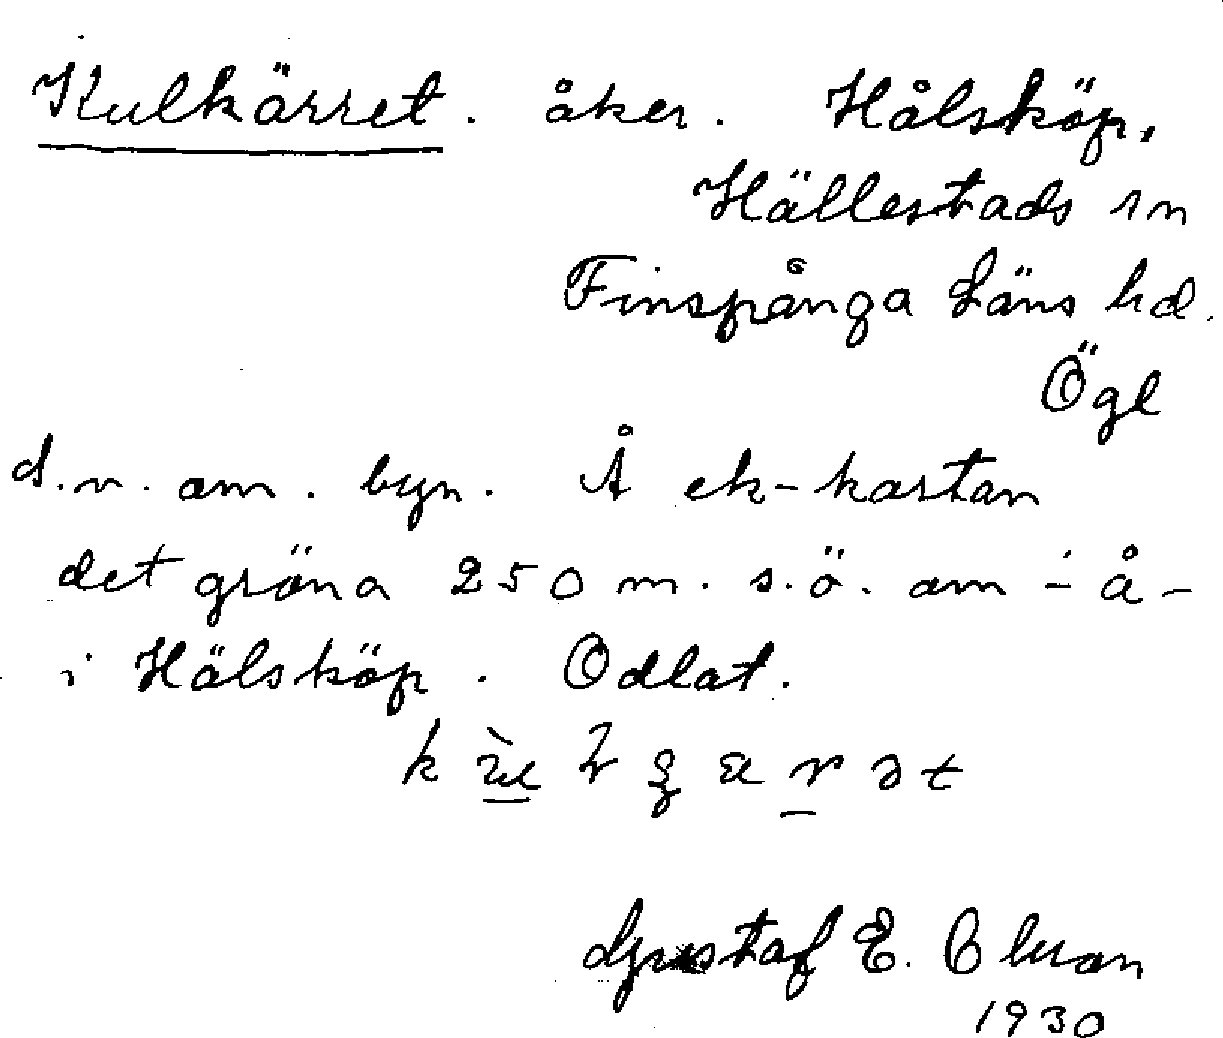 Kulkärret. åker. Hålsköp.
Hällestads sn
Finspånga Läns hd.
Ögl
d.n. om. byn. Å ek-kartan
det gröna 250 m. s.ö. om - å -
i Hälsköp. Odlat.
Gustaf E.
1930